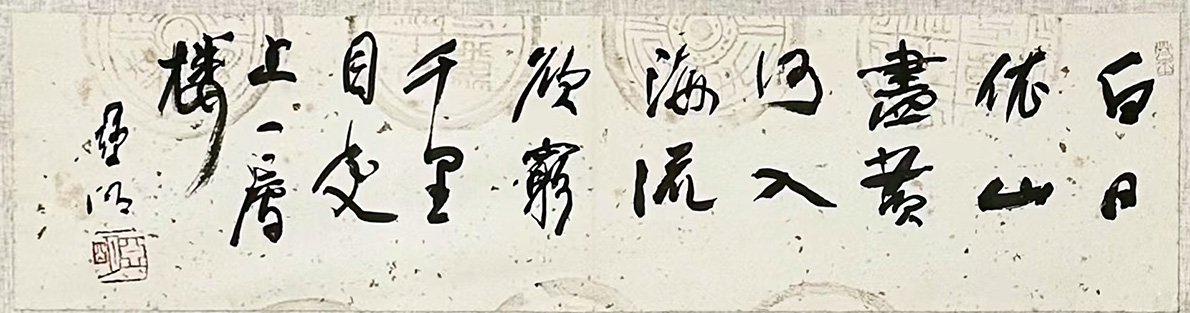 白日
依山
盡黄
河入
海流
欲窮
千里
目更
上一層
樓
亞明